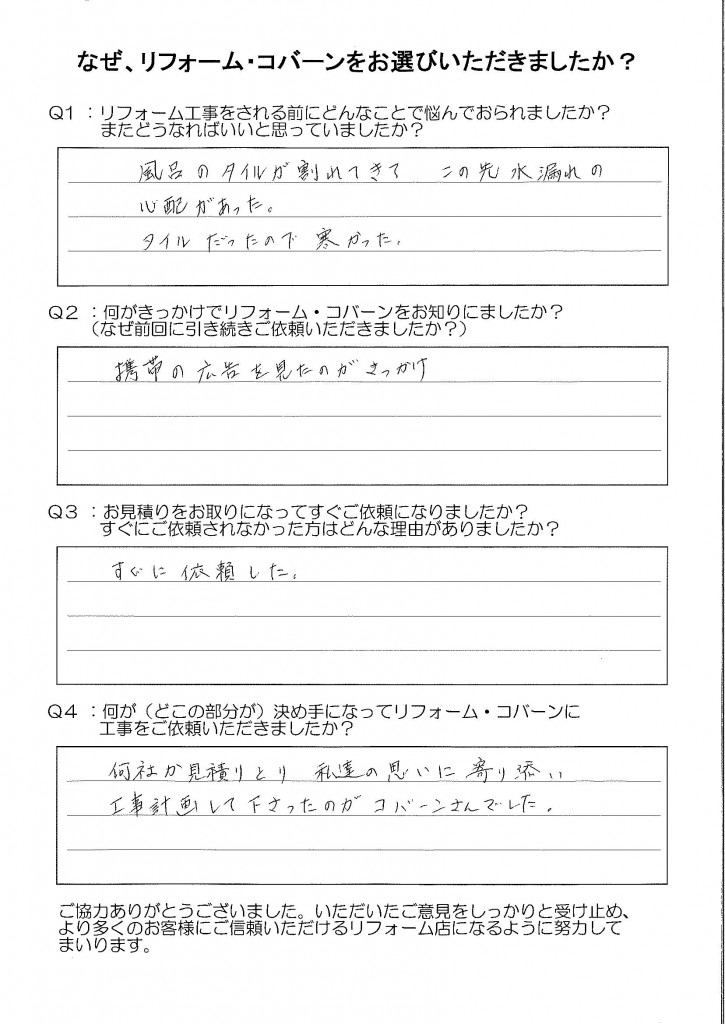 なぜ、リフォーム・コバーンをお選びいただきましたか？
Q1 ：リフォーム工事をされる前にどんなことで悩んでおられましたか？
またどうなればいいと思っていましたか？
風呂のタイルが割れてきて この先水漏れの
心配があった。
タイルだったので寒かった。
Q2 ：何がきっかけでリフォーム・コバーンをお知りにましたか？
（なぜ前回に引き続きご依頼いただきましたか？）
携帯の広告を見たのがきっかけ
Q3 ：お見積りをお取りになってすぐご依頼になりましたか？
すぐにご依頼されなかった方はどんな理由がありましたか？
すぐに依頼した。
Q4 ：何が（どこの部分が）決め手になってリフォーム・コバーンに
工事をご依頼いただきましたか？
何社か見積りとり 私達の思いに寄り添い
工事計画して下さったのがコバーンさんでした。
ご協力ありがとうございました。いただいたご意見をしっかりと受け止め、
より多くのお客様にご信頼いただけるリフォーム店になるように努力して
まいります。